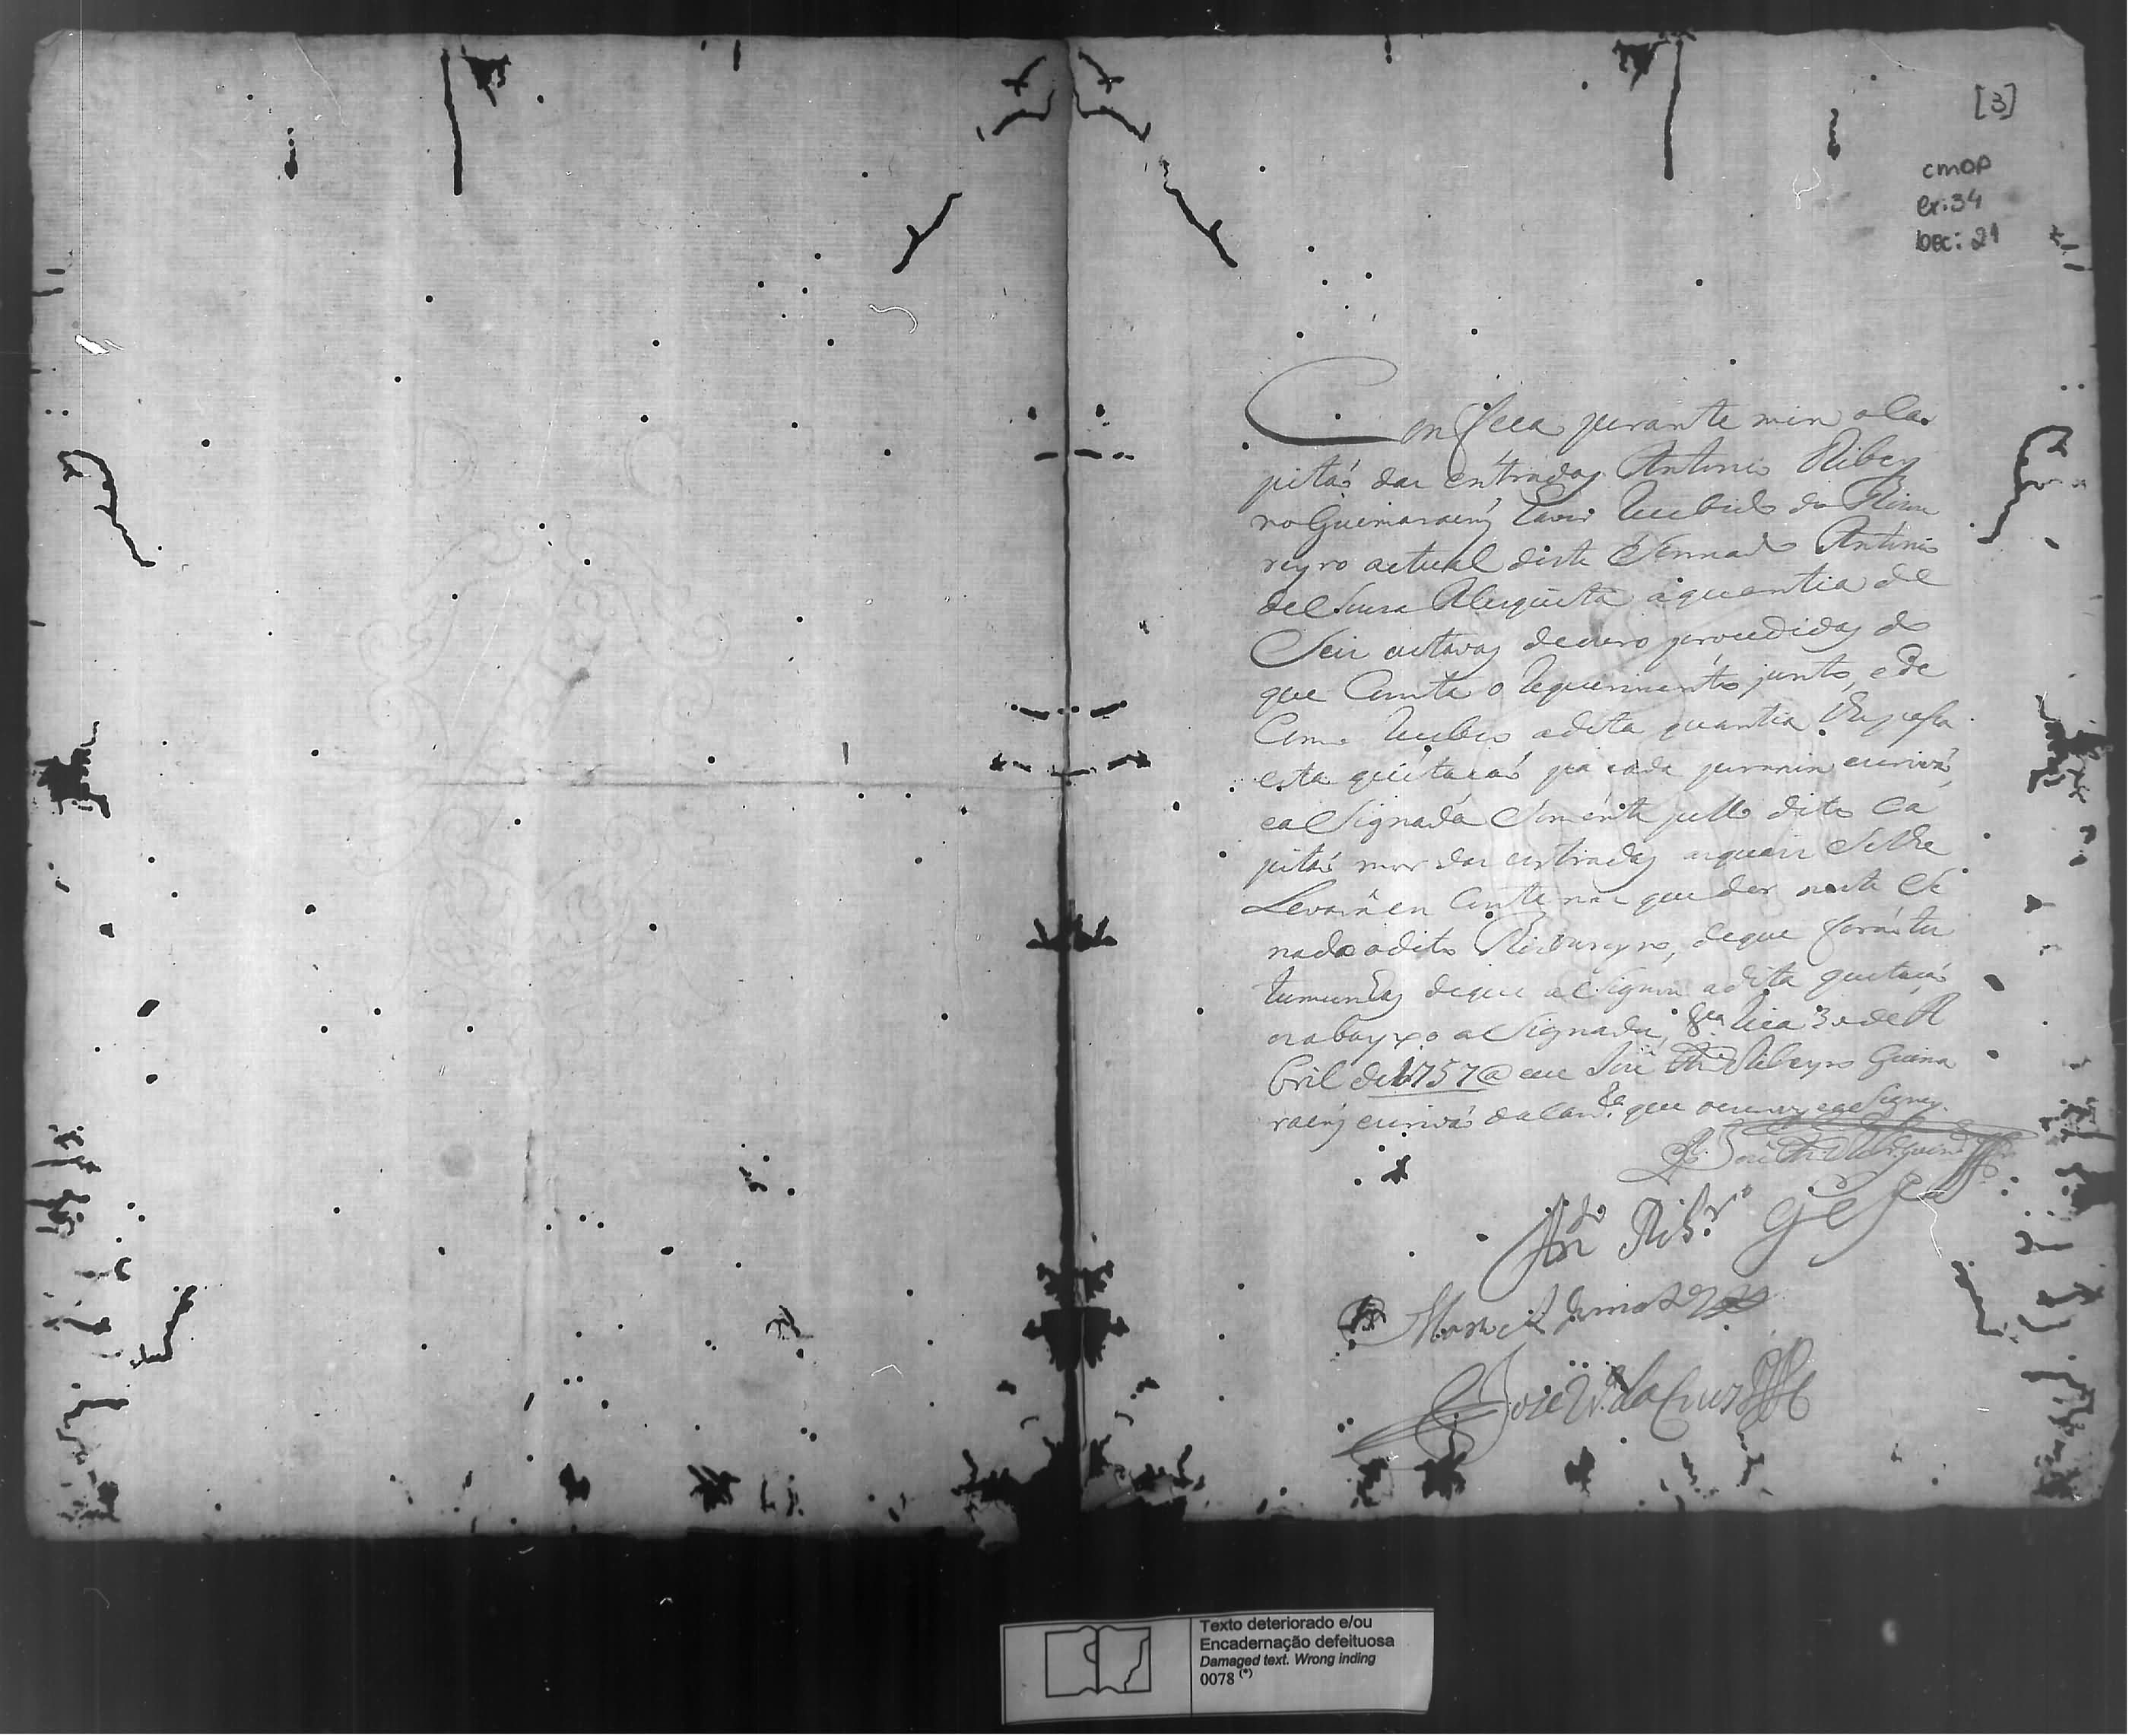 [3]
cmop
cx: 34
Doc: 21
Confeça perante mim o Ca
pitaó das entradas Antonio Ribey
ro Guimaraenz haver Recebido do Thizou
reyro actual deste Sennado Antonio
de Souza Mesquita a quantia de
Seis outavas de ouro procedidas do
que Consta o Requerimento junto, e de
Como Recebeo a dita quantia lhe passa
esta quitacaó pacada por mim escrivaó,
e aSignada Sómente pello dito Ca
pitaó mor das entradas a quoal Se lhe
Levará em Conta nas que der neste Se
nado o dito Thizoureyro, de que foraó tes
temunhas de que aSignou a dita quitacaó
os abayxo aSignados, Va Rica 30 de A
bril de 1757@ eu José Anto Ribeyro Guima
raenz escrivaó da Camra que o escrevy e aSigney.
José Anto Ribro Guimes
Anto Ribro Ges
Manoel
José da Cruz
Texto deteriorado e/ou
Encadernação defeituosa
Damaged text. Wrong inding
0078 (*)